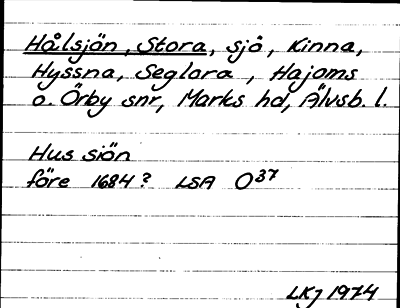 Hålsjön, Stora, sjö, Kinna,
Hyssna, Seglora, Hajoms
o. Örby snr, Marks hd, Älvsb. l.
Hus siön
före 1684? LSA O37
LKj 1974